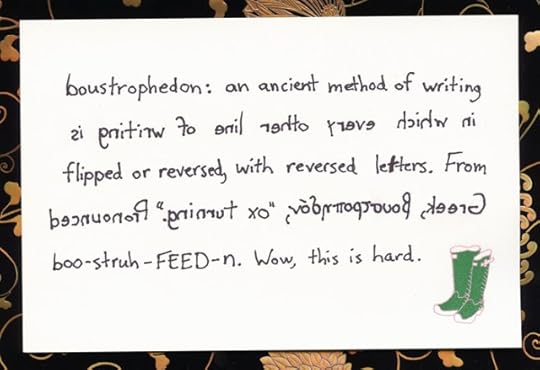 boustrophedon: an ancient method of writing
in which every other line of writing is
flipped or reversed, with reversed letters. From
Greek, βουστροφηδόν, "ox turning." Pronounced
boo-struh-FEED-n. Wow, this is hard.